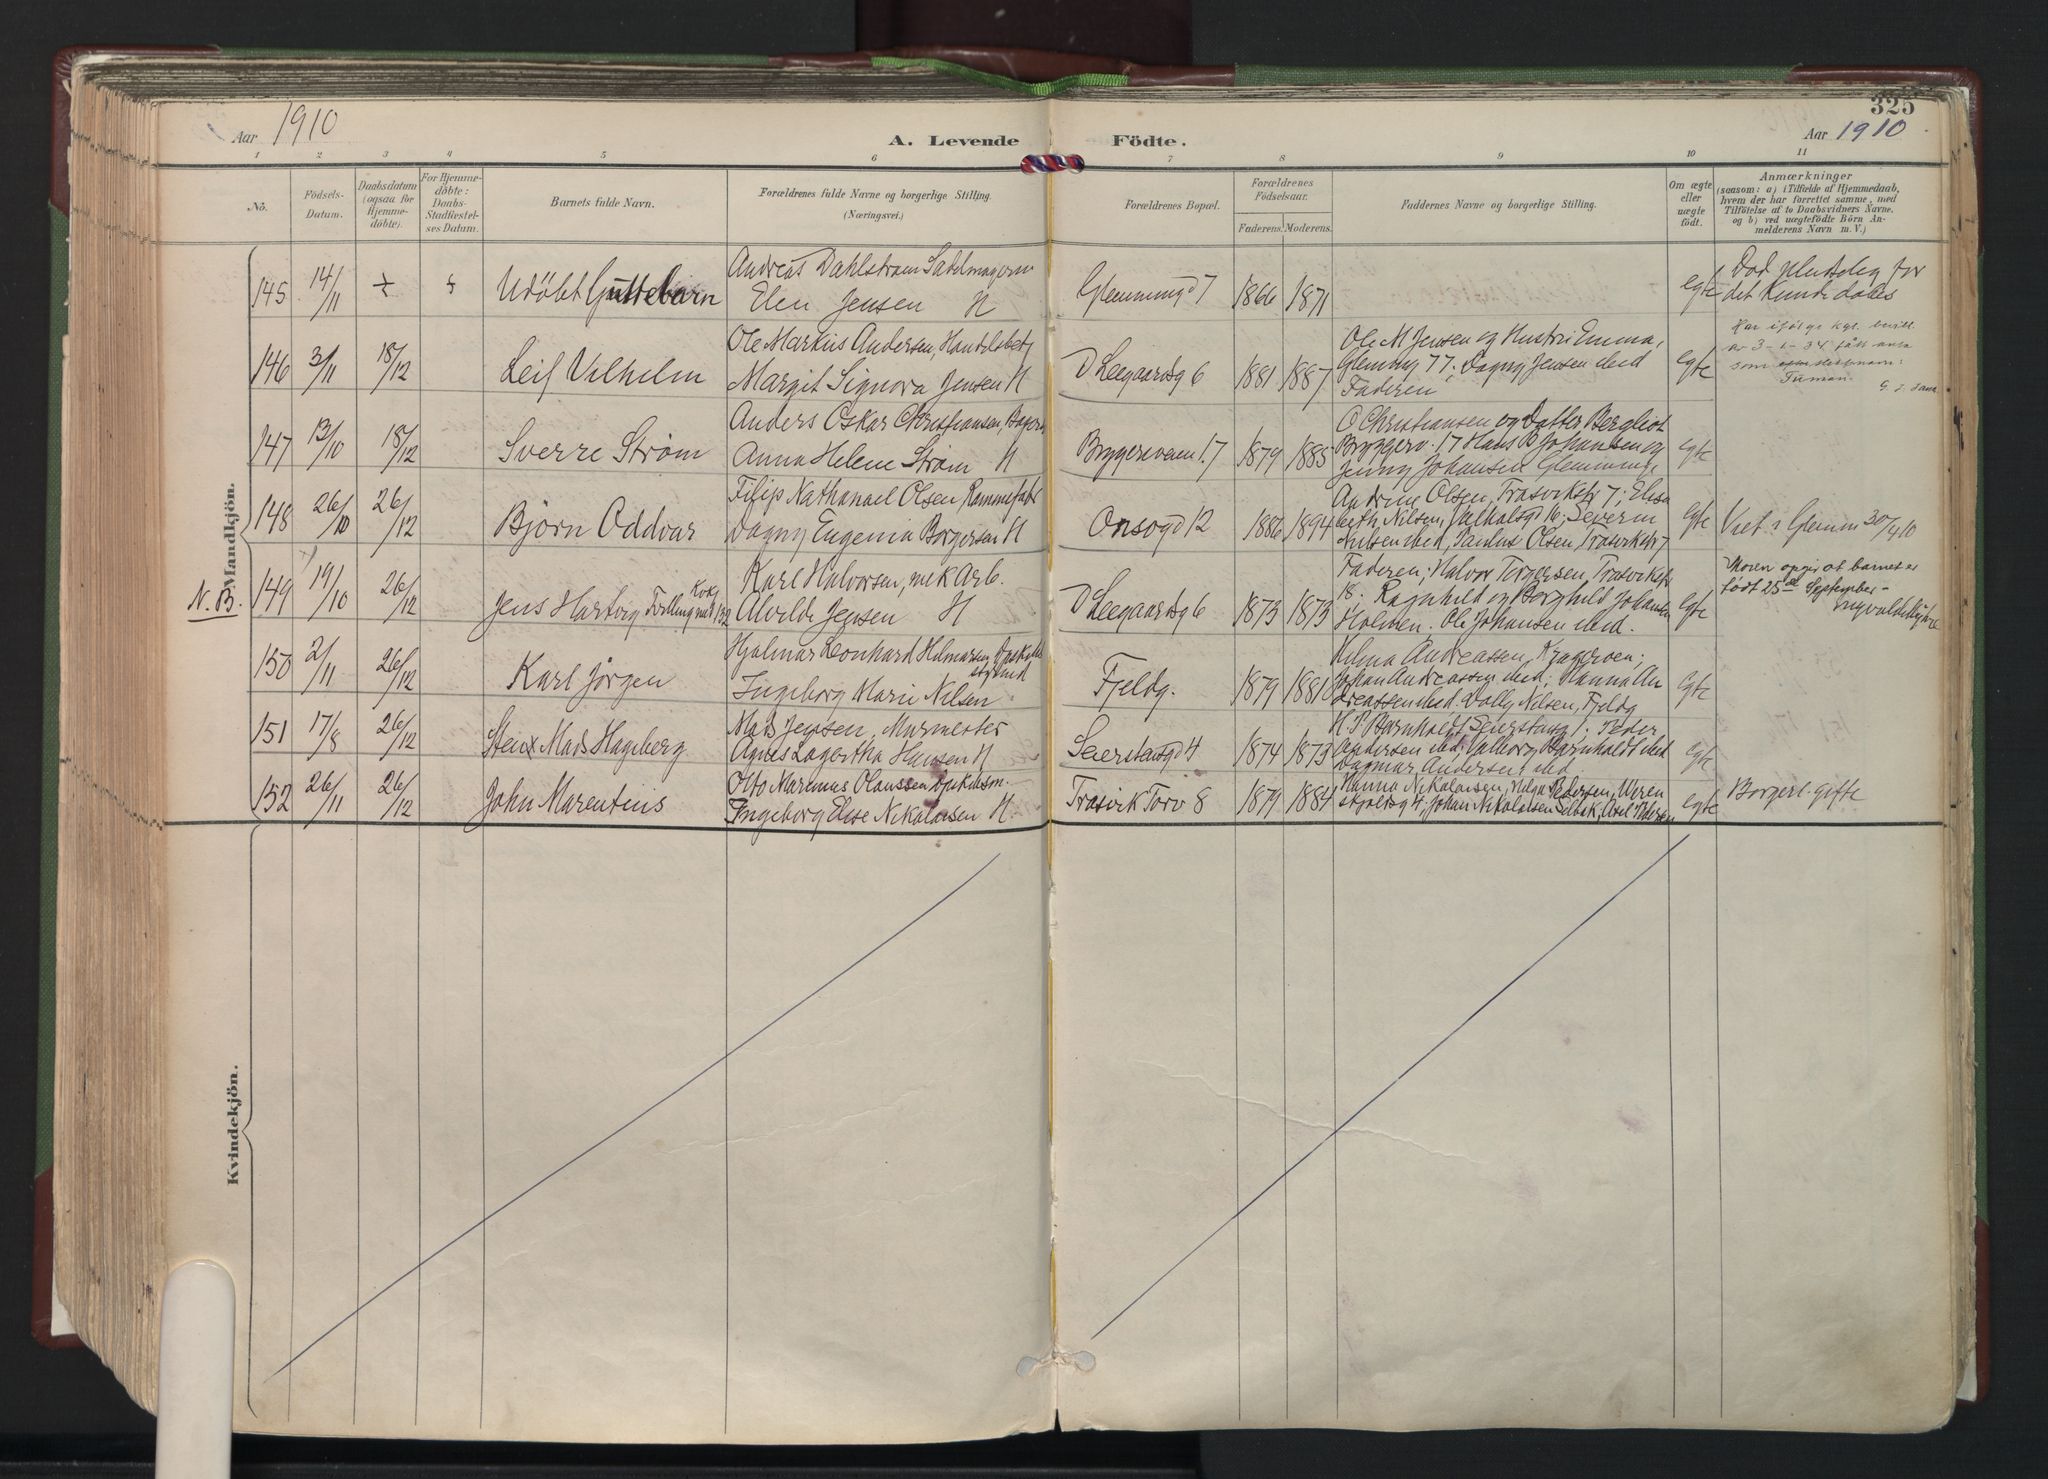 325
Aar 1910
A. Levende
Födte.
Aar 1910
1 2 3 4 5 6 7 8 9 10 11
Nö.
Födsels-
Datum.
Daabsdatum
(ogsaa for
Hjemme-
döbte).
For Hjemme-
döbte:
Daabs-
Stadfæstel-
ses Datum.
Barnets fulde Navn.
Forældrenes fulde Navne og borgerlige Stilling.
(Næringsvei.)
Forældrenes Bopæl.
Forældrenes
Födselsaar.
Faderens. Moderens.
Faddernes Navne og borgerlige Stilling.
Om ægte
eller
uægte
födt.
Anmærkninger
(saasom: a) i Tilfælde af Hjemmedaab,
hvem der har forrettet samme, med
Tilföielse af to Daabsvidners Navne.
og b) ved uægtefödte Börn An-
melderens Navn m. V.)
Mandkjön.
145 14/11 Udöbt Guttebarn
Andreas Dahlstrøm Sadelmagersv
Elen Jensen H
Glemmingd 7 1866 1871
egte
Död pludselig før
det kunde døbes
146 3/11 18/12 Leif Vilhelm
Ole Markus Andersen, Handelsbetj
Margit Signora Jensen H
D Leegaardsg 6 1881 1887
Ole M Jensen og Hustru Emma,
Glemmg 77; Dagny Jensen ibid
Faderen
egte
Har ifølge kgl. bevill.
av 3-1-34 fått anta
som slektsnavn:
147 13/10 18/12 Sverre Strøm
Anders Oskar Christiansen, Bager
Anna Helene Strøm H
Bryggeriveien 17 1879 1885
O Christiansen og Datter Bergliot
Bryggerv. 17 Hans B Johansen og
Jenny Johansen Glemming
egte
148 26/10 26/12 Bjørn Oddvar
Filip Nathanael Olsen, Rammefabr
Dagny Eugenia Borgersen H
Onsøgd 12 1886 1894
Andrine Olsen, Trosvikstr 7; Elisa
beth Nilsen, 16; Severin
Nilsen ibid, Paulus Olsen, Trosvikstr 7
egte
Viet i Glemm 30/4 10
N.B. 149 19/10 26/12 Jens Hartvig
Karl Halvorsen, mek Arb.
Alvilde Jensen H
D Leegaardsg 6 1873 1873
Faderen; Halvor Torgersen, Trosvikstr
18. Ragnhild og Borghild Johansen
Holmen. Ole Johansen ibid.
egte
Moren opgir at barnet er
født 25de September
150 2/11 26/12 Karl Jørgen
Hjalmar Leonhard Hilmarsen
Ingeborg Marie Nilsen
Fjeldg. 1879 1881
Andreassen, Kragerøen;
Johan Andreassen ibid; Hanna An
dreassen ibid. Dolly Nilsen, Fjeldg
egte
151 17/8 26/12 Sten Mads Hageberg
Mads Jensen, Murmester
Agnes Lagertha Hansen H
Seierstensgd 4 1874 1873
H P Barnholdt, Seierstensg 1. Peder
Andersen ibid; Valborg Barnholdt ibid
Dagmar Andersen ibid
egte
152 26/11 26/12 John Marentius
Otto Marenius Olaussen
Ingeborg Elise Nikolaisen H.
Trosvik Torv 8 1879 1884
Hanna Nikolaisen, Helga Pedersen, Wern
skjoldsg 4, Johan Nikolaisen Selbak, Axel Pedersen
egte
Borgerl. gifte
Kvindekjön.